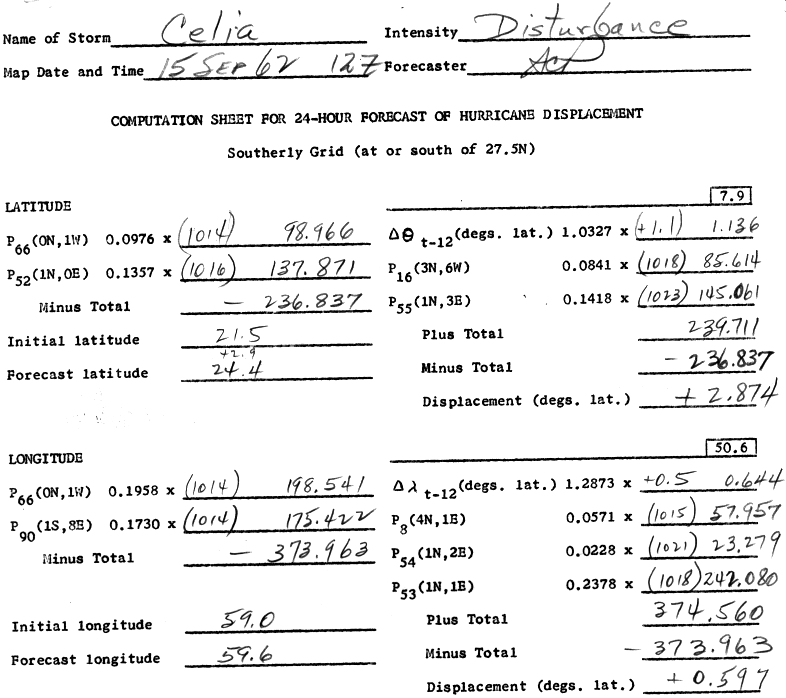 Name of Storm Celia Intensity Disturbance
Map Date and Time 15 SEP 62 12Z Forecaster
COMPUTATION SHEET FOR 24-HOUR FORECAST OF HURRICANE DISPLACEMENT
Southerly Grid (at or south of 27.5N)
LATITUDE 7.9
P66(0N,1W) 0.0976 x (1014) 98.966 Δθ t-12(degs. lat.) 1.0327 x (+1.1) 1.136
P52(1N,0E) 0.1357 x (1016) 137.871 P16(3N,6W) 0.0841 x (1018) 85.614
Minus Total - 236.837 P55(1N,3E) 0.1418 x (1023) 145.061
Initial latitude 21.5 Plus Total 239.711
+2.9
Forecast latitude 24.4 Minus Total - 236.837
Displacement (degs. lat.) + 2.874
LONGITUDE 50.6
P66(0N,1W) 0.1958 x (1014) 198.541 Δλ t-12(degs. lat.) 1.2873 x +0.5 0.644
P90(1S,8E) 0.1730 x (1014) 175.422 P8(4N,1E) 0.0571 x (1015) 57.957
Minus Total - 373.963 P54(1N,2E) 0.0228 x (1021) 23.279
P53(1N,1E) 0.2378 x (1018) 242.080
Initial longitude 59.0 Plus Total 374.560
Forecast longitude 59.6 Minus Total - 373.963
Displacement (degs. lat.) + 0.597